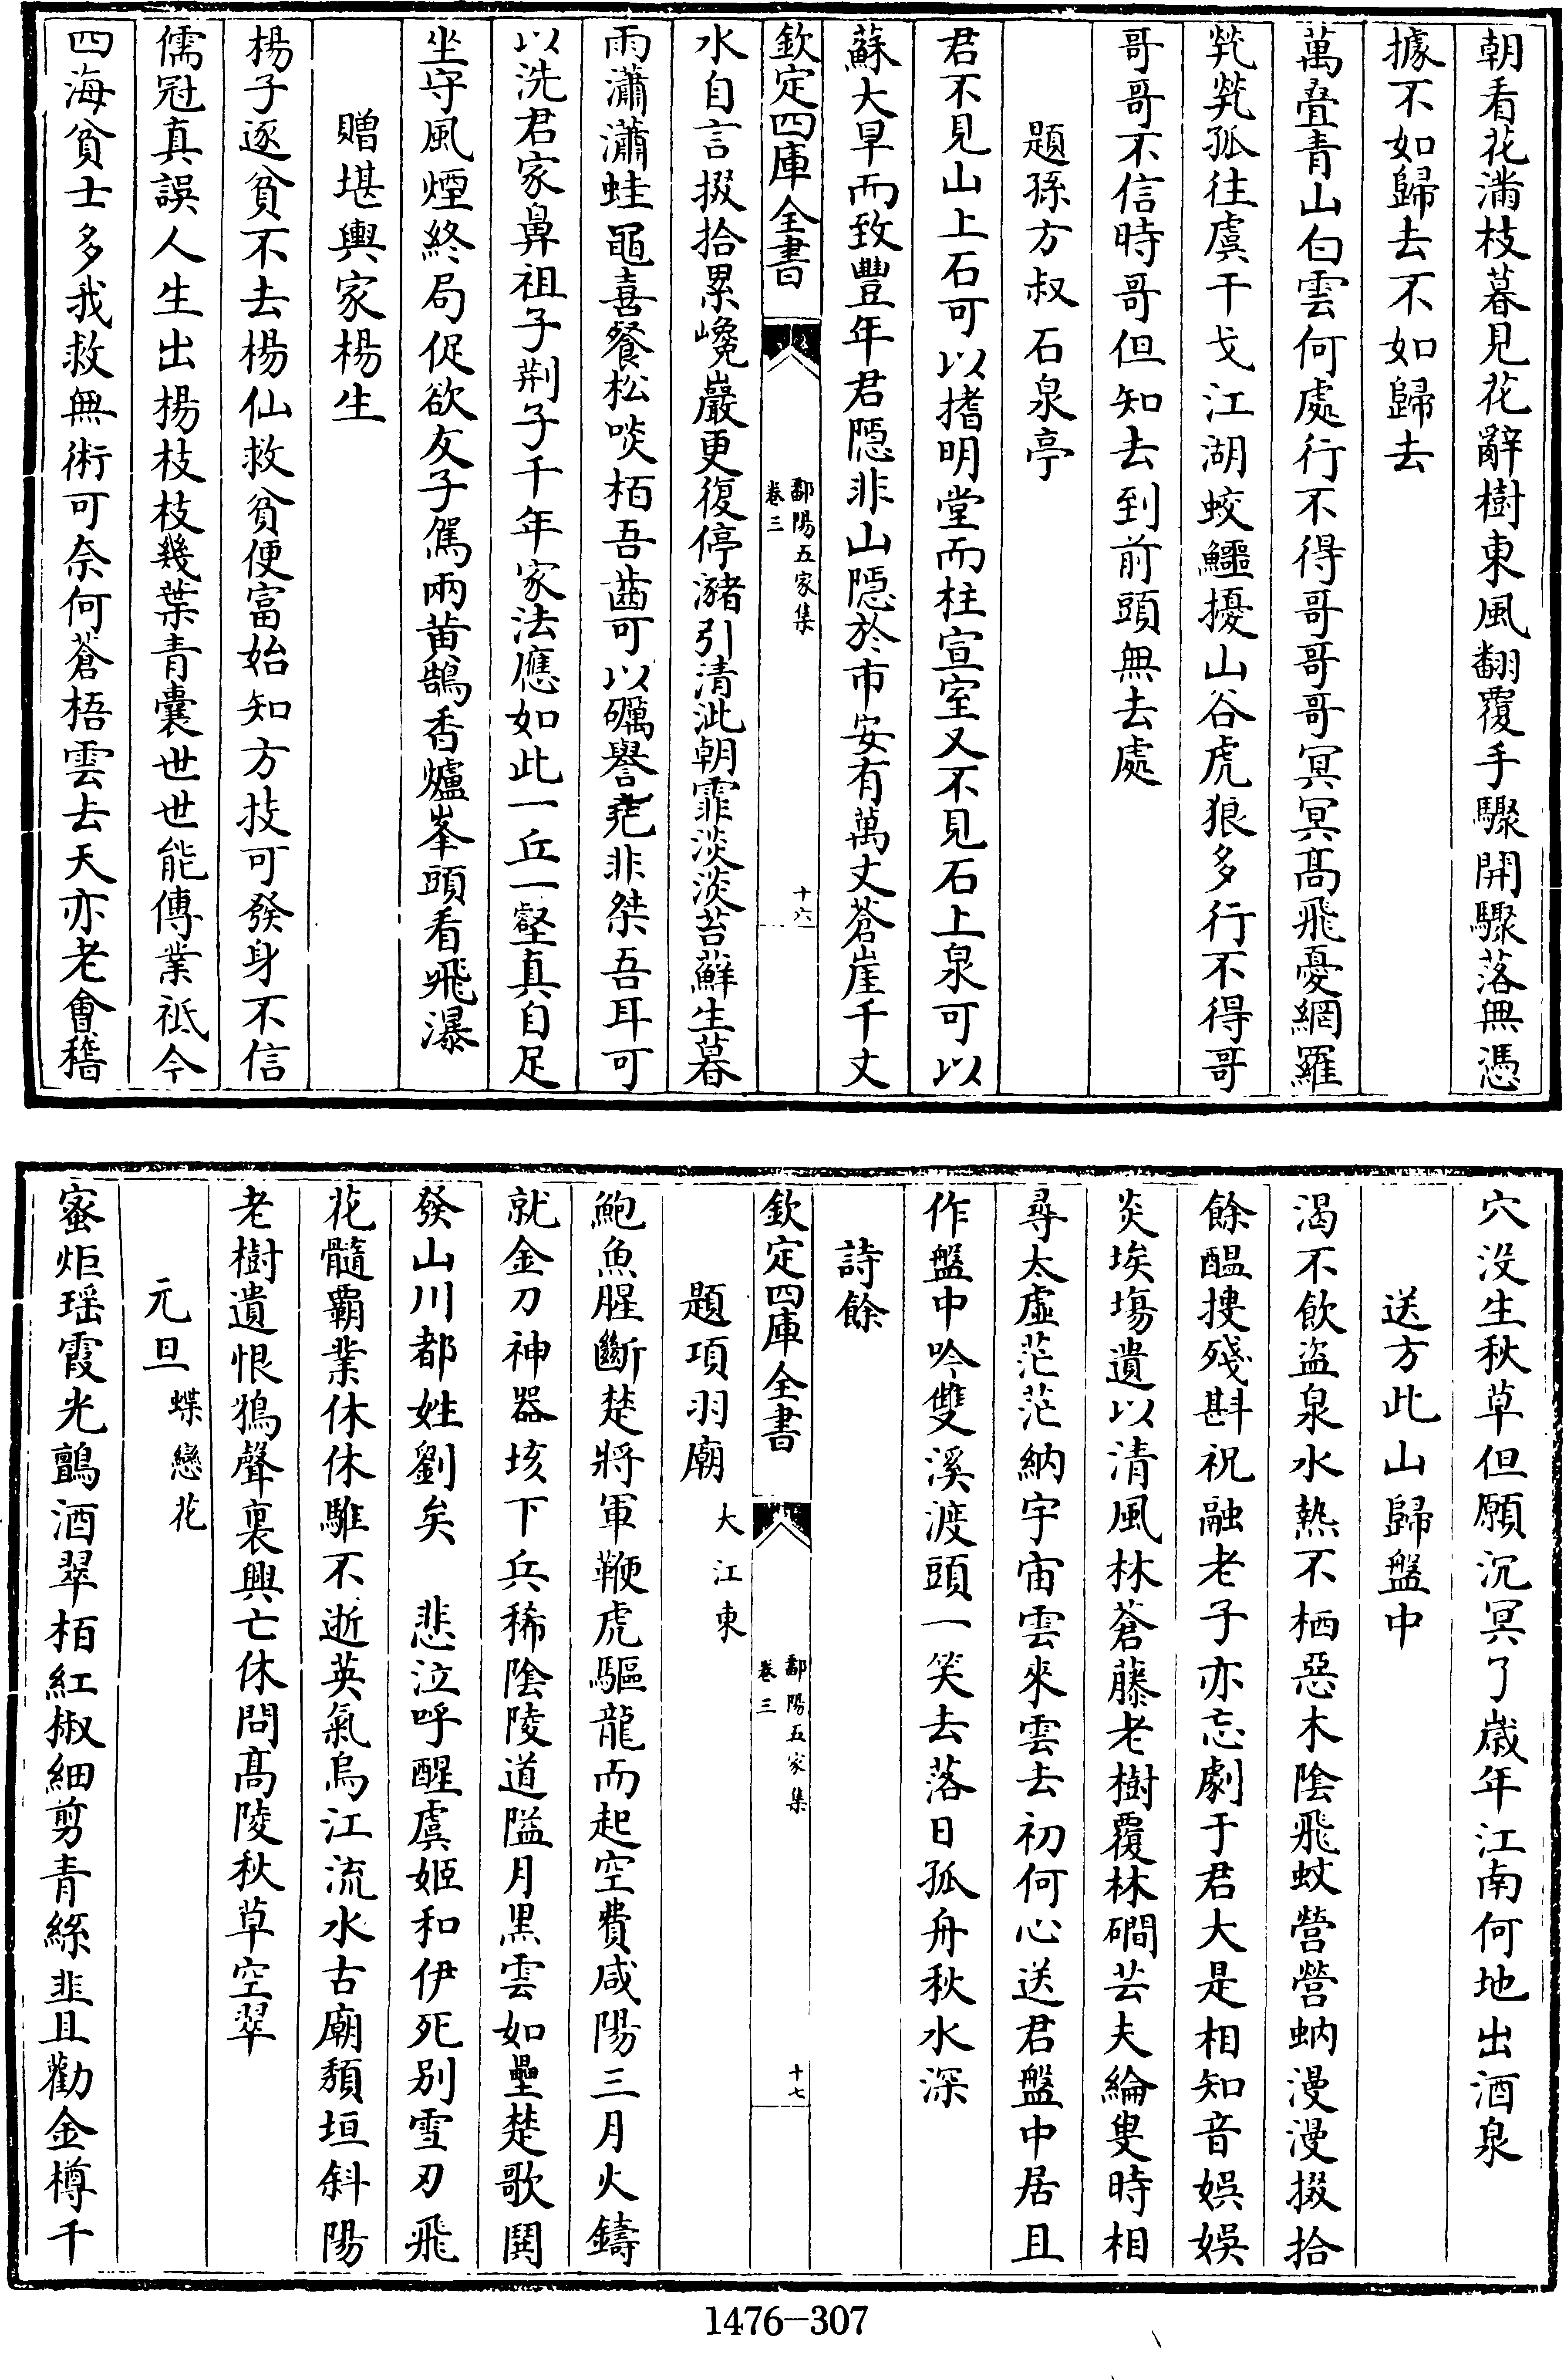 朝看花滿枝暮見花辭樹東風翻覆手驟開驟落無憑
據不如歸去不如歸去
萬叠青山白雲何處行不得哥哥哥冥冥髙飛憂網羅
煢煢孤往虞干戈江湖蛟鱷擾山谷虎狼多行不得哥
哥哥不信時哥但知去到前頭無去處
題孫方叔石泉亭
君不見山上石可以搘明堂而柱宣室又不見石上泉可以
蘇大旱而致豐年君隱非山隱於市安有萬丈蒼崖千丈
欽定四庫全書
鄱陽五家集
卷三
十六
水自言掇拾累巉巖更復停瀦引清泚朝霏淡淡苔蘚生暮
雨瀟瀟蛙黽喜餐松啖栢吾齒可以礪譽堯非桀吾耳可
以洗君家鼻祖子荆子千年家法應如此一丘一壑真自足
坐守風煙終局促欲友子駕兩黄鵠香爐峯頭看飛瀑
贈堪輿家楊生
楊子逐貧不去楊仙救貧便富始知方技可發身不信
儒冠真誤人生出楊枝枝幾葉青囊世世能傳業祗今
四海貧士多我救無術可奈何蒼梧雲去天亦老會稽
穴没生秋草但願沉冥了歲年江南何地出酒泉
送方此山歸盤中
渴不飲盜泉水熱不栖惡木陰飛蚊營營蚋漫漫掇拾
餘醖摟殘斟祝融老子亦忘劇于君大是相知音娯娯
炎埃塲遺以清風林蒼藤老樹覆林磵芸夫綸叟時相
尋太虛茫茫納宇宙雲來雲去初何心送君盤中居且
作盤中吟雙溪渡頭一笑去落日孤舟秋水深
詩餘
欽定四庫全書
鄱陽五家集
卷三
十七
題項羽廟 大江東
鮑魚腥斷楚將軍鞭虎驅龍而起空費咸陽三月火鑄
就金刀神器垓下兵稀陰陵道隘月黒雲如壘楚歌鬨
發山川都姓劉矣 悲泣呼醒虞姬和伊死别雪刃飛
花髓霸業休休騅不逝英氣烏江流水古廟頹垣斜陽
老樹遺恨鴉聲裏興亡休問髙陵秋草空翠
元旦 蝶戀花
蜜炬瑶霞光颤酒翠栢紅椒細剪青絲韭且勸金樽千
1476-307